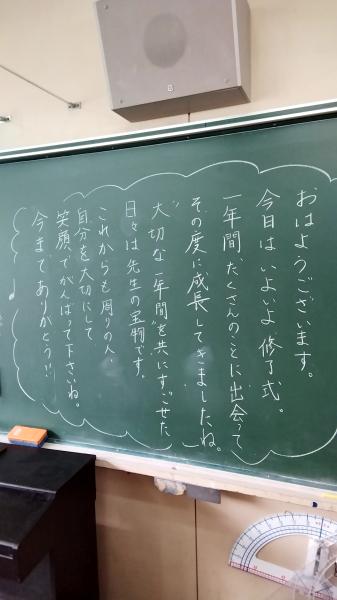 おはようございます。
今日はいよいよ修了式。
一年間、たくさんのことに出会って
その度に成長してきましたね。
大切な一年間を共にすごせた
日々は先生の宝物です。
これからも周りの人
自分を大切にして
笑顔でがんばって下さいね。
今までありがとう!!